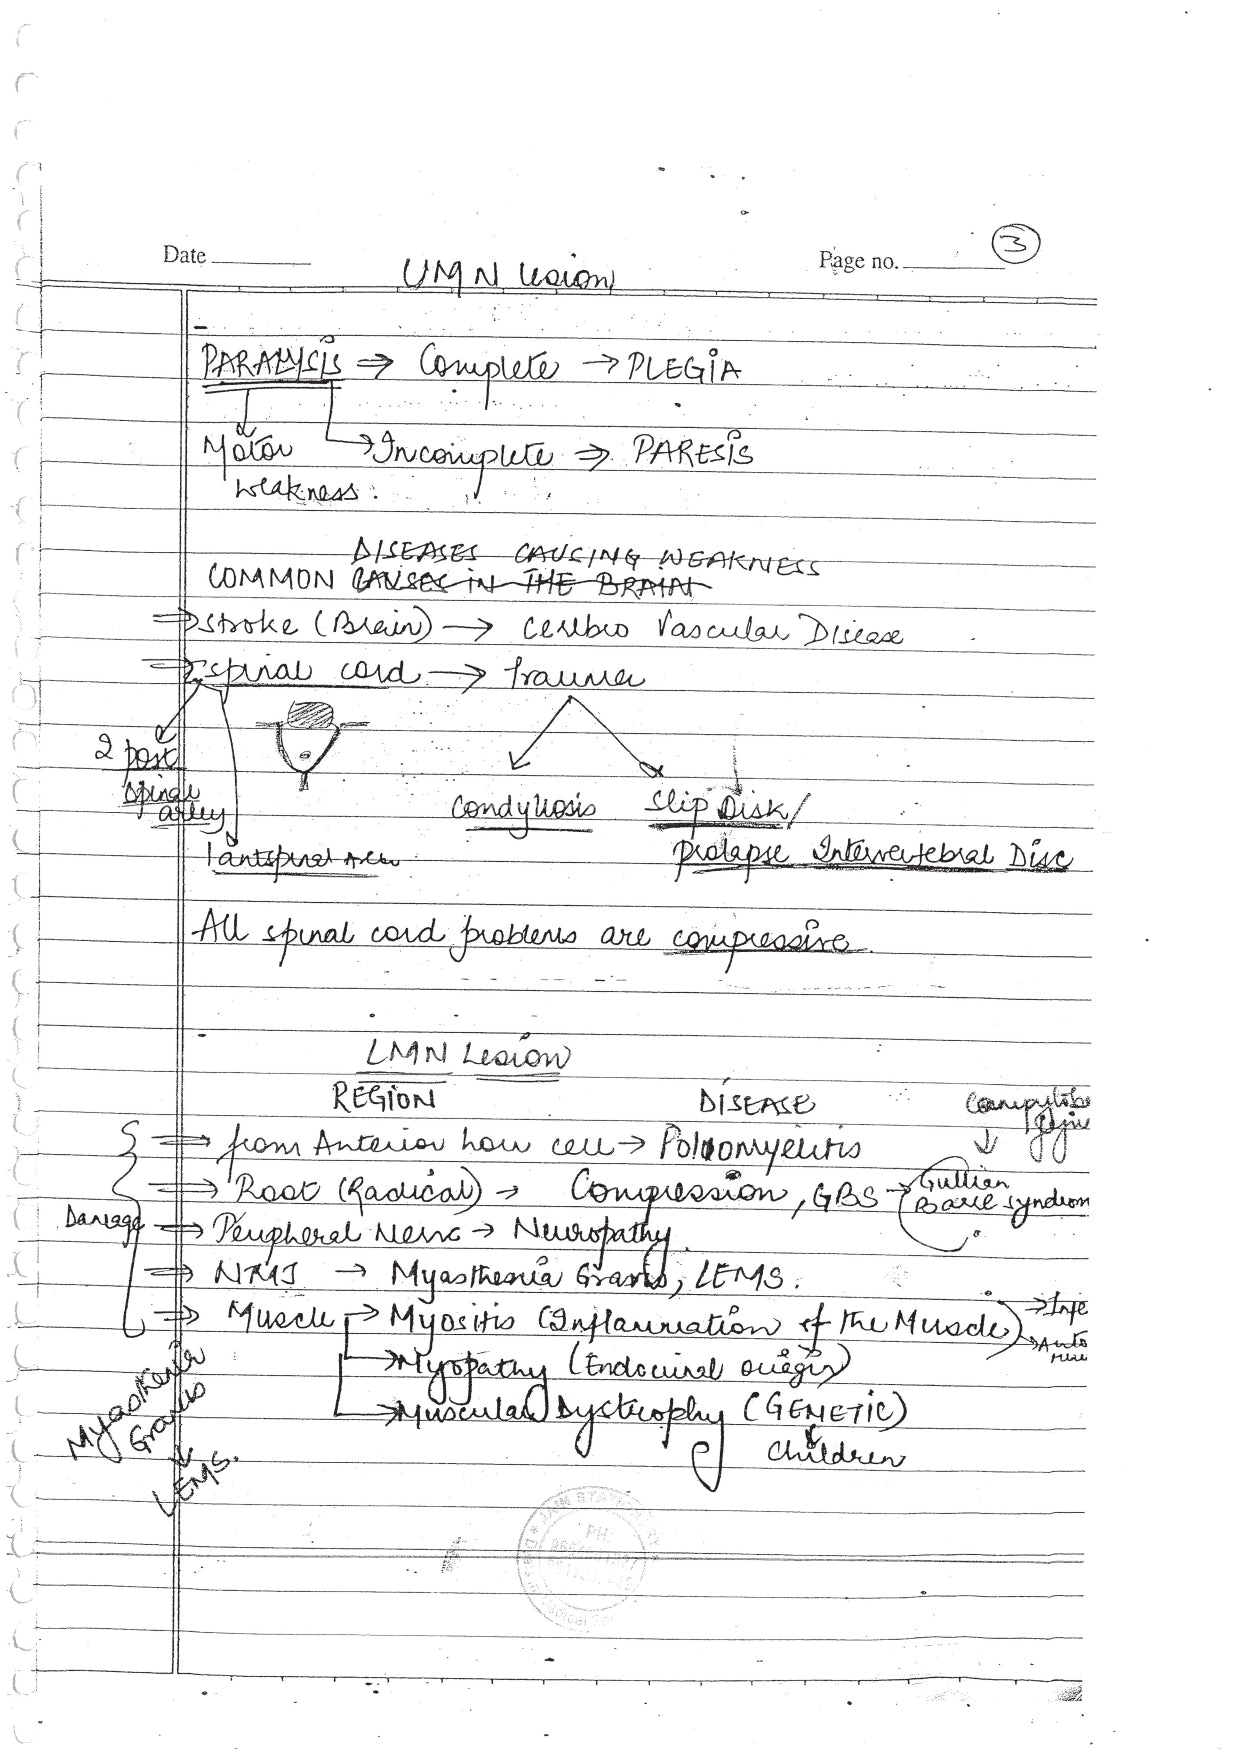 Date
Page no. 3
UMN lesion
PARALYSIS ⇒ Complete → PLEGIA
Motor → Incomplete ⇒ PARESIS
weakness.
DISEASES CAUSING WEAKNESS
COMMON CAUSES IN THE BRAIN
⇒ stroke (Brain) → Cerebro Vascular Disease
⇒ spinal cord → Trauma
2 post
spinal
artery
Condylosis Slip Disk/
1 ant spinal
Prolapse Intervertebral Disc
All spinal cord problems are compressive.
LMN Lesion
REGION DISEASE
⇒ from Anterior horn cell → Poliomyelitis
⇒ Root (Radical) → Compression, GBS → Gullian
Barre Syndrom
Damage ⇒ Peripheral Nerve → Neuropathy.
⇒ NMJ → Myasthenia Gravis, LEMS.
⇒ Muscle → Myositis (Inflammation of the Muscle) → Infe
→ Auto
→ Myopathy (Endocrinal origin)
→ Muscular Dystrophy (GENETIC)
Children
Myasthenia
Gravis
LEMS.
JAIN
PH.